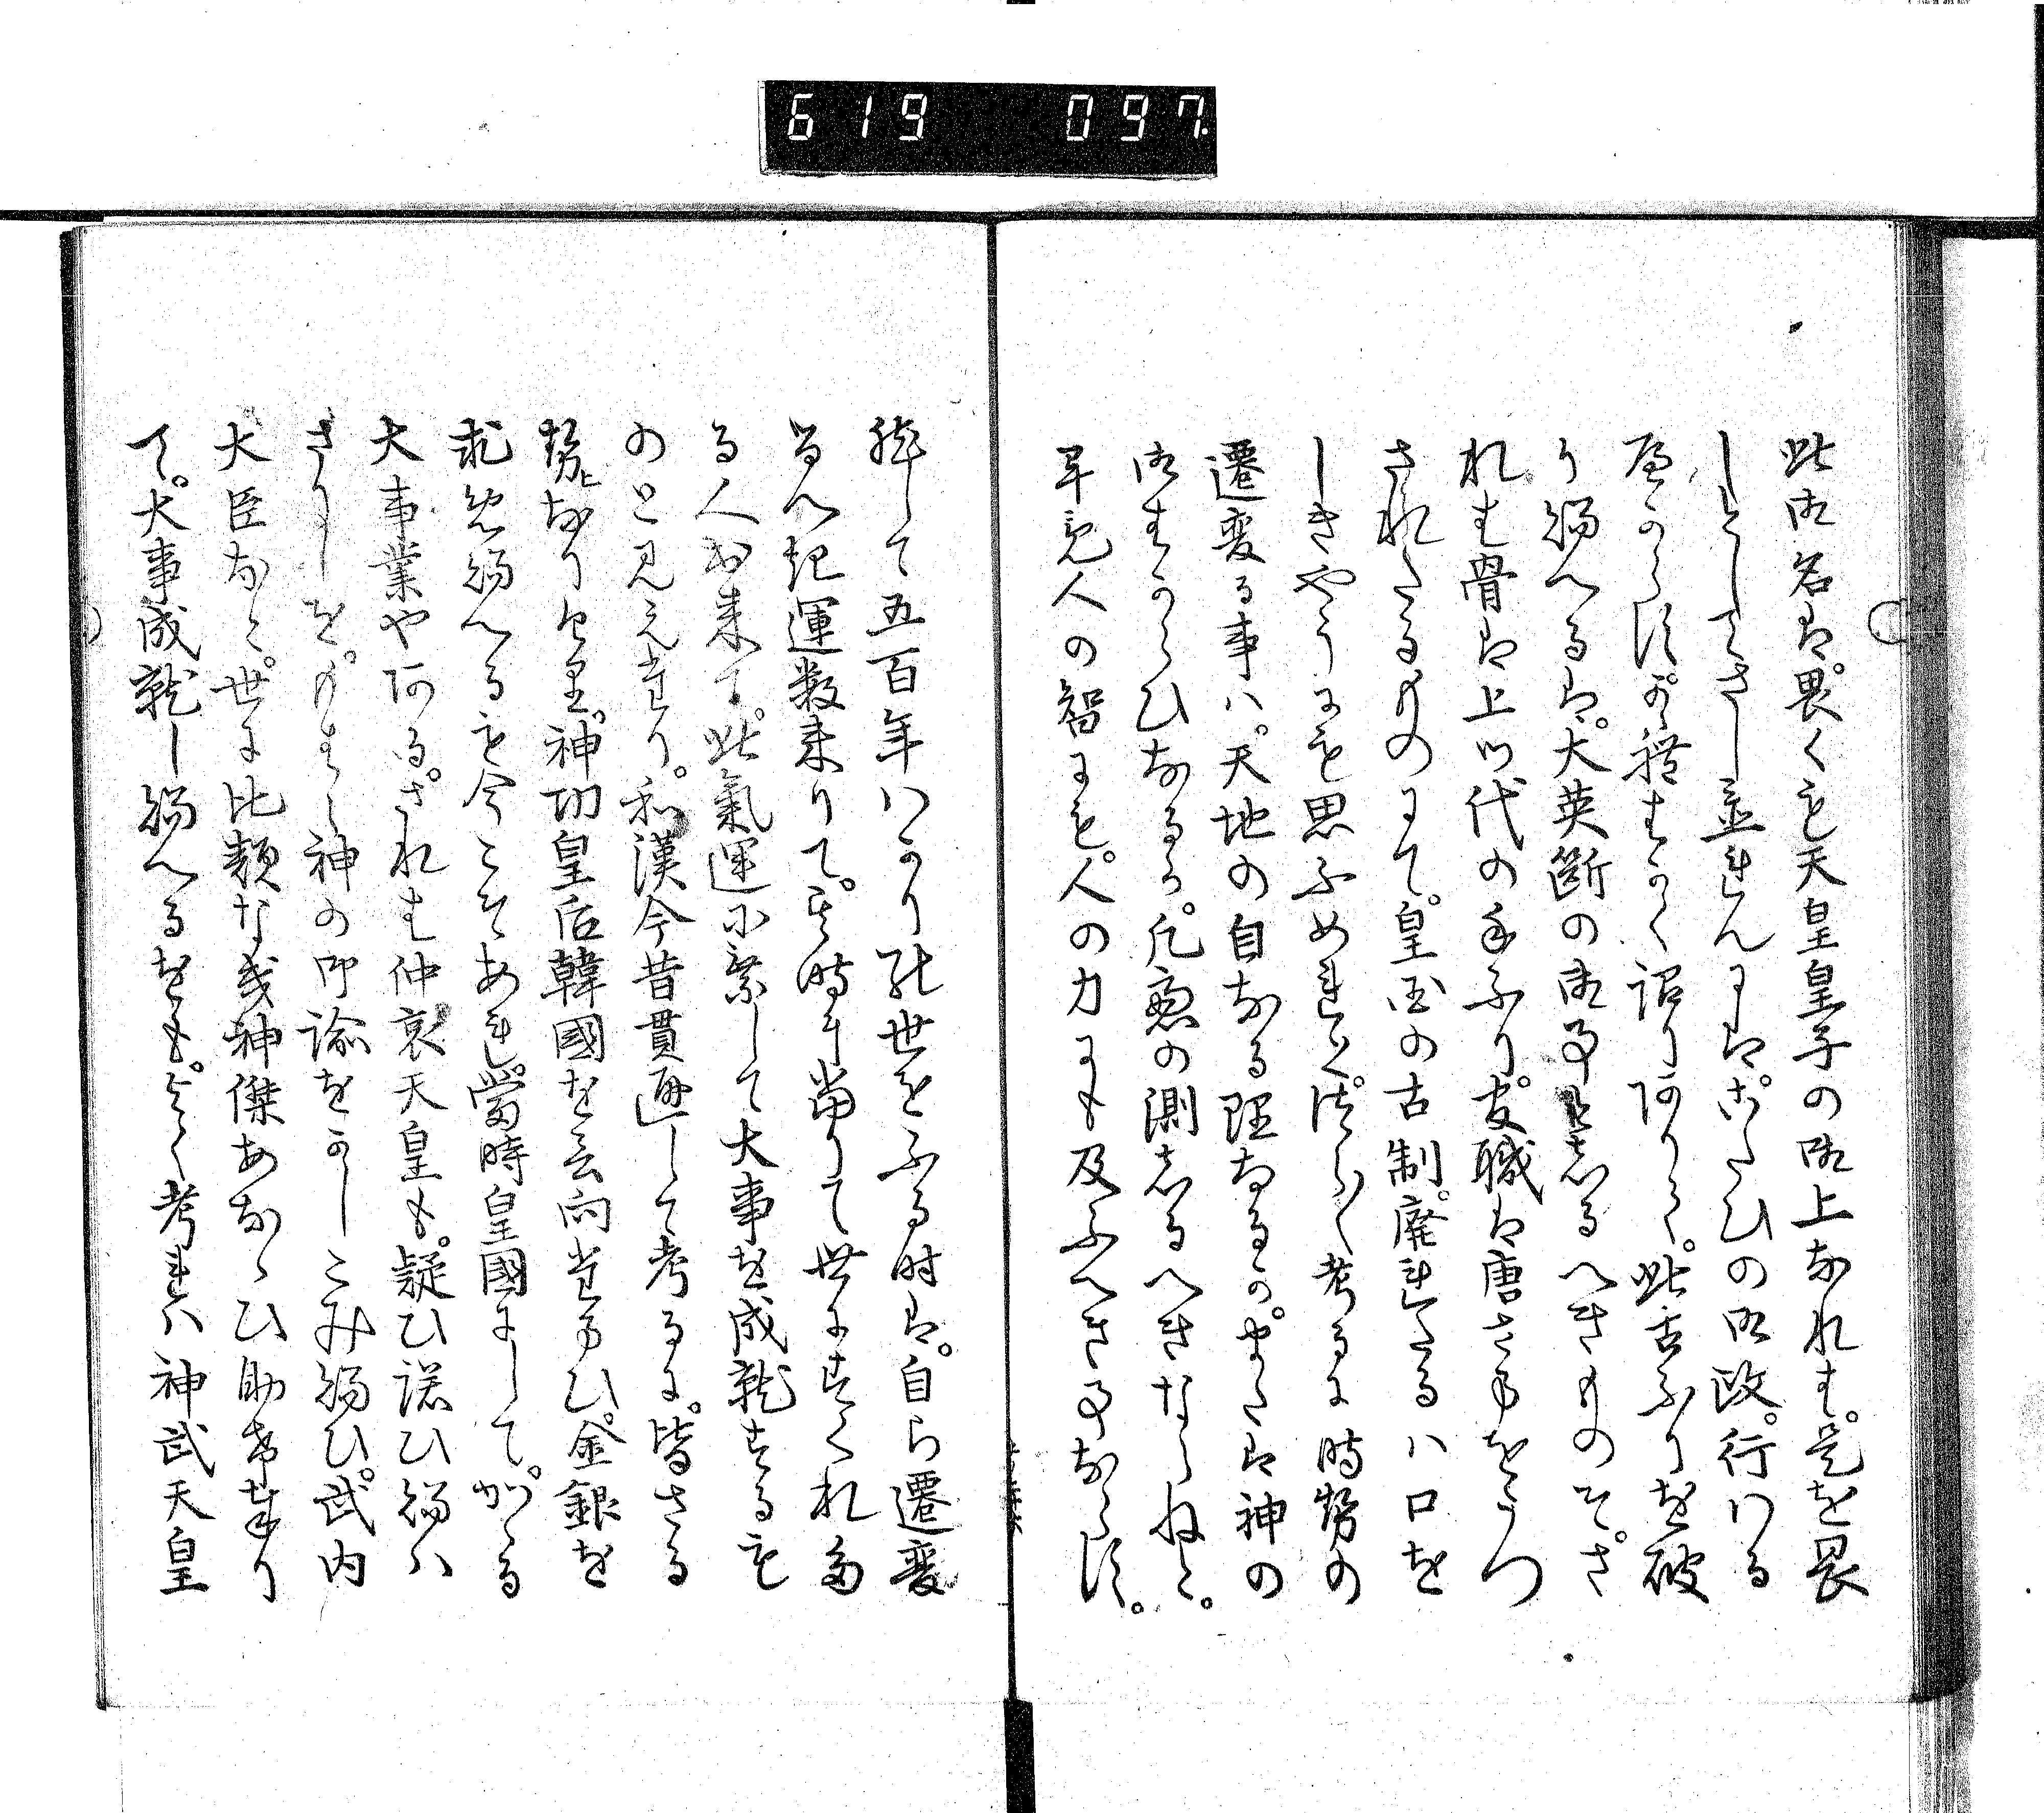 619 097
此御名は。畏くも天皇皇子の御上なれは。是を畏
しとしてさし並れんには。かたひの御政。行はる
へからす。かく詔りありて。此古ふりを破
り給へるは。大英断の御事と申へきものそ。さ
れは骨は上つ代の手ふり。官職は唐さまをうつ
されたるものにて。皇国の古制。廃れたるハ口を
しきやうにも思ふめれと。つらつら考るに時勢の
遷変る事ハ。天地の自なる理なるか。またハ神の
御はからひなるか。凡慮の測しるへきならねと。
早竟人の智にも。人の力にも及ふへき事ならす。
五百年ハかり経世をふる時は。自ら遷変
る人へき運数来りて。其時に当りて世にすくれた
る人出来て。此氣運に乗して大事を成就するも
のと見えたり。和漢今昔貫通して考るに。皆さる
勢なり。神功皇后韓國を言向たまひ。金銀を
求め給へるも今こそあれ。當時皇國にして。かゝる
大事業やある。されは仲哀天皇も。疑ひ諾ひ給ハ
さりしを。神の御諭をかしこみ給ひ。武内
大臣なと。世に比類なき神傑あなゝひ助け奉り
て。大事成就し給へるをも。よく考れハ神武天皇